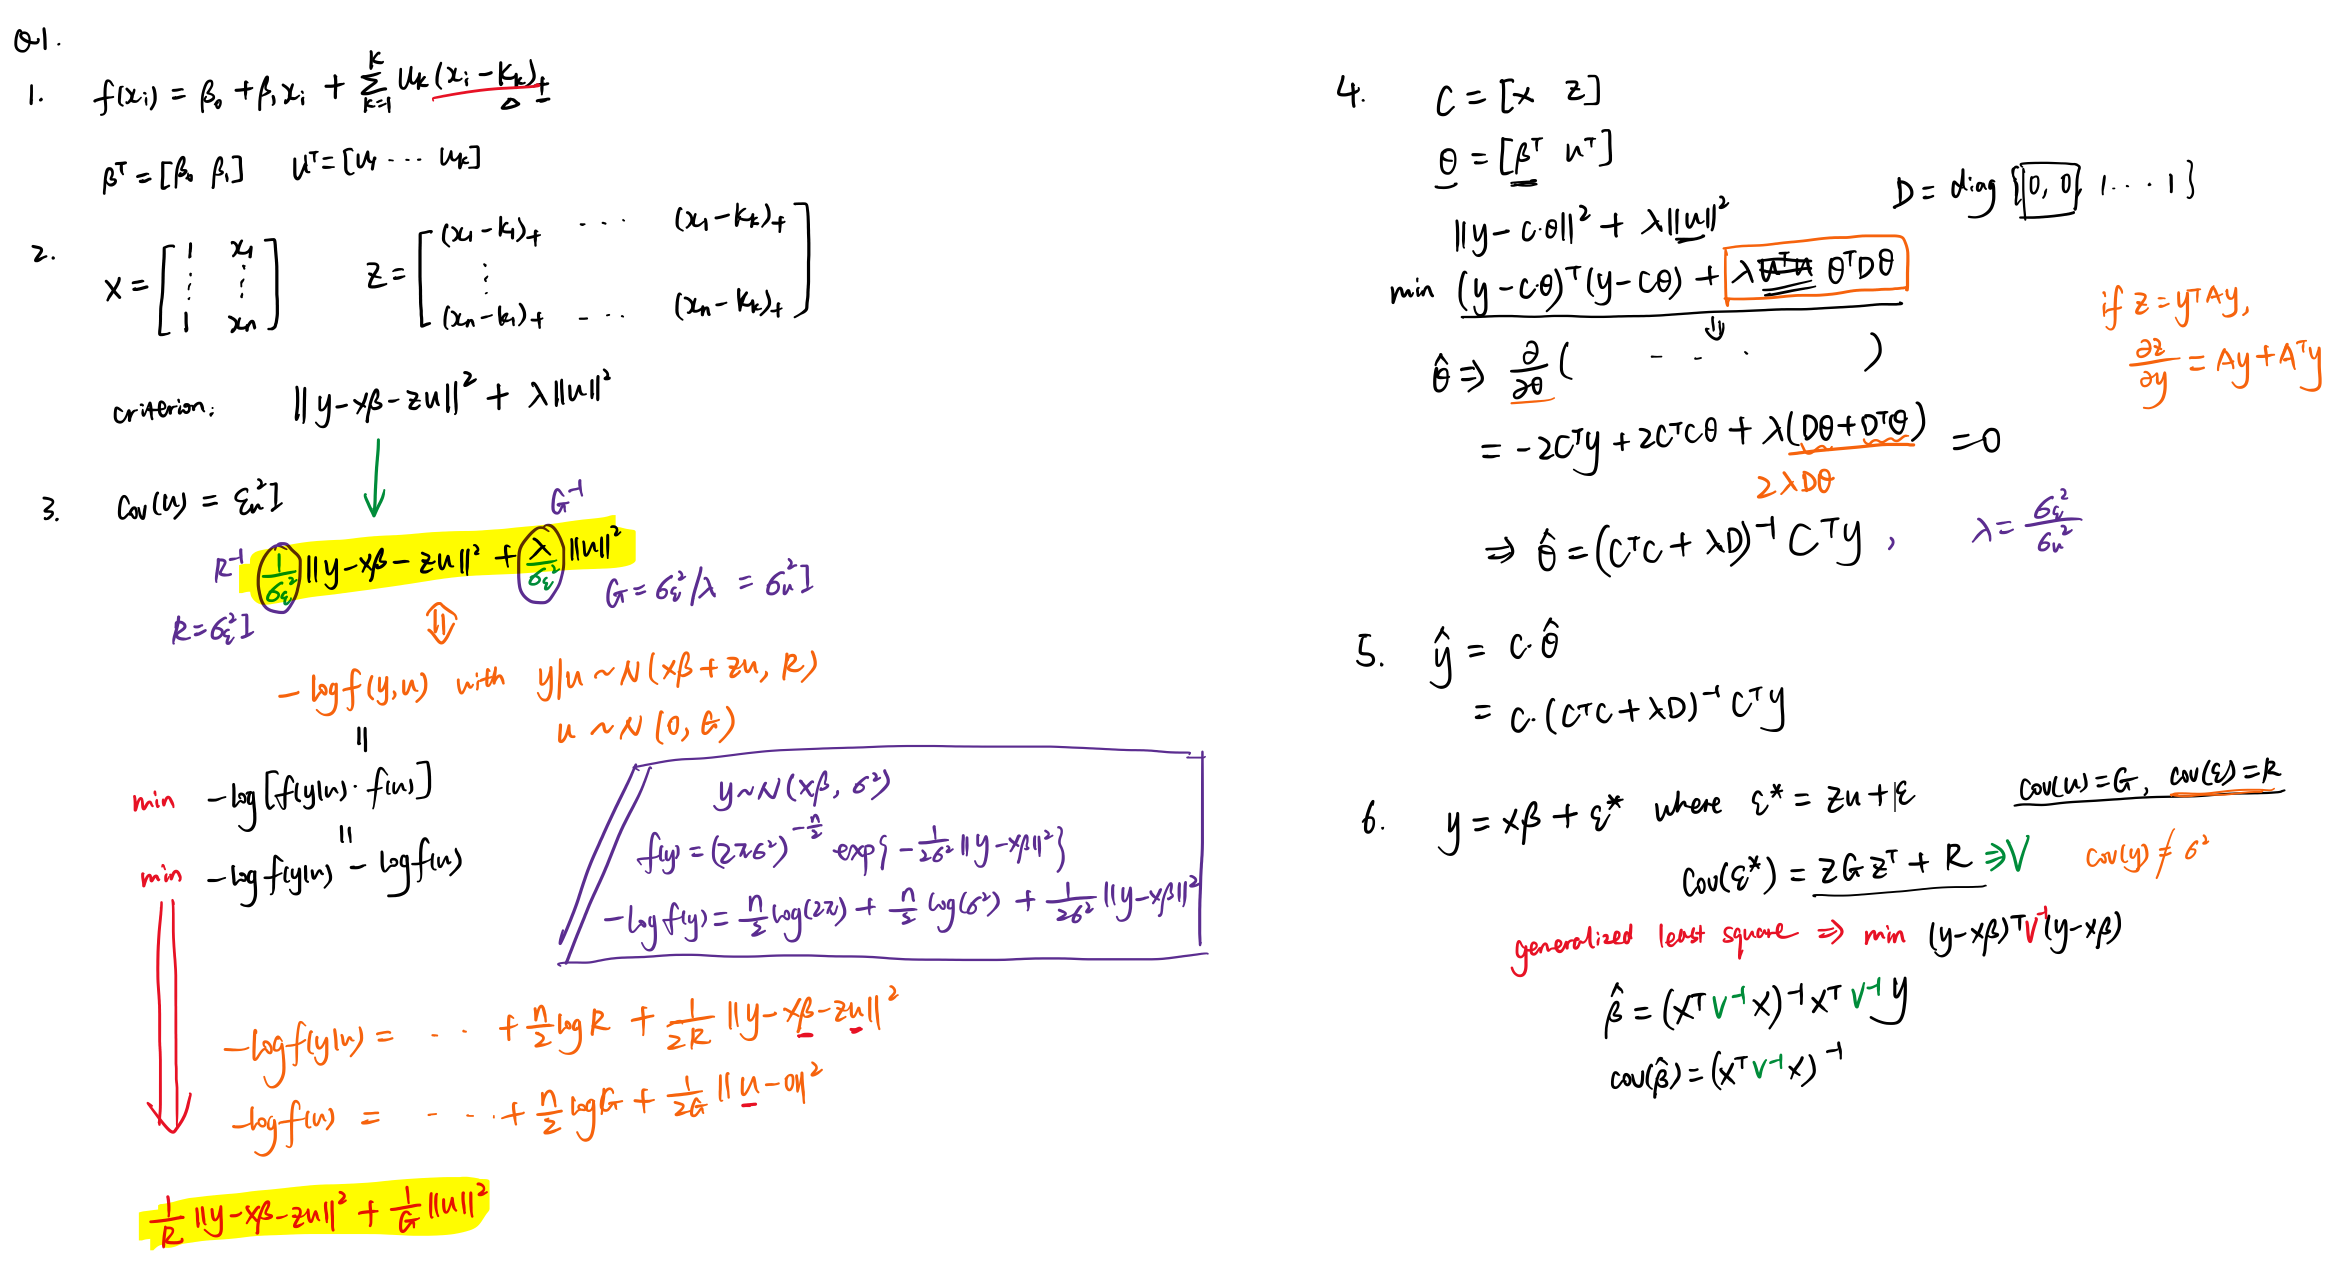 Q1.
1. f(xᵢ) = β₀ + β₁xᵢ + Σ_{k=1}^{K} u_k(xᵢ − K_k)₊
βᵀ = [β₀ β₁] uᵀ = [u₁ ··· u_k]
2. X = [1 x₁ ⋮ ⋮ 1 xₙ] Z = [(x₁−k₁)₊ ··· (x₁−k_k)₊ ⋮ (xₙ−k₁)₊ ··· (xₙ−K_k)₊]
criterion: ‖y−xβ−zu‖² + λ‖u‖²
3. Cov(u) = Σᵤ²I
G⁻¹
R⁻¹ 1/σ_ε² ‖y−xβ−zu‖² + λ/σ_ε² ‖u‖²
R = σ_ε²I G = σ_ε²/λ = σᵤ²I
⇕
−log f(y,u) with y|u ~ N(xβ + zu, R)
u ~ N(0, G)
=
min −log[f(y|u)·f(u)]
=
min −log f(y|u) − log f(u)
y ~ N(xβ, σ²)
f(y) = (2πσ²)^{−n/2} exp{−1/2σ² ‖y−xβ‖²}
−log f(y) = n/2 log(2π) + n/2 log(σ²) + 1/2σ² ‖y−xβ‖²
−log f(y|u) = ··· + n/2 log R + 1/2R ‖y−xβ−zu‖²
−log f(u) = ··· + n/2 log G + 1/2G ‖u−0‖²
1/R ‖y−xβ−zu‖² + 1/G ‖u‖²
4. C = [x z]
θ = [βᵀ uᵀ]
D = diag{0, 0, 1 ··· 1}
‖y − c·θ‖² + λ‖u‖²
min (y−cθ)ᵀ(y−cθ) + λ uᵀu θᵀDθ
if z = yᵀAy,
∂z/∂y = Ay + Aᵀy
θ̂ ⇒ ∂/∂θ ( − − · )
= −2Cᵀy + 2CᵀCθ + λ(Dθ + Dᵀθ) = 0
2λDθ
⇒ θ̂ = (CᵀC + λD)⁻¹ Cᵀy, λ = σ_ε²/σᵤ²
5. ŷ = c·θ̂
= c·(CᵀC + λD)⁻¹ Cᵀy
6. y = xβ + ε* where ε* = zu + ε cov(u) = G, cov(ε) = R
Cov(ε*) = ZGZᵀ + R ⇒ V cov(y) ≠ σ²
generalized least square ⇒ min (y−xβ)ᵀV⁻¹(y−xβ)
β̂ = (xᵀV⁻¹x)⁻¹xᵀV⁻¹y
cov(β̂) = (xᵀV⁻¹x)⁻¹